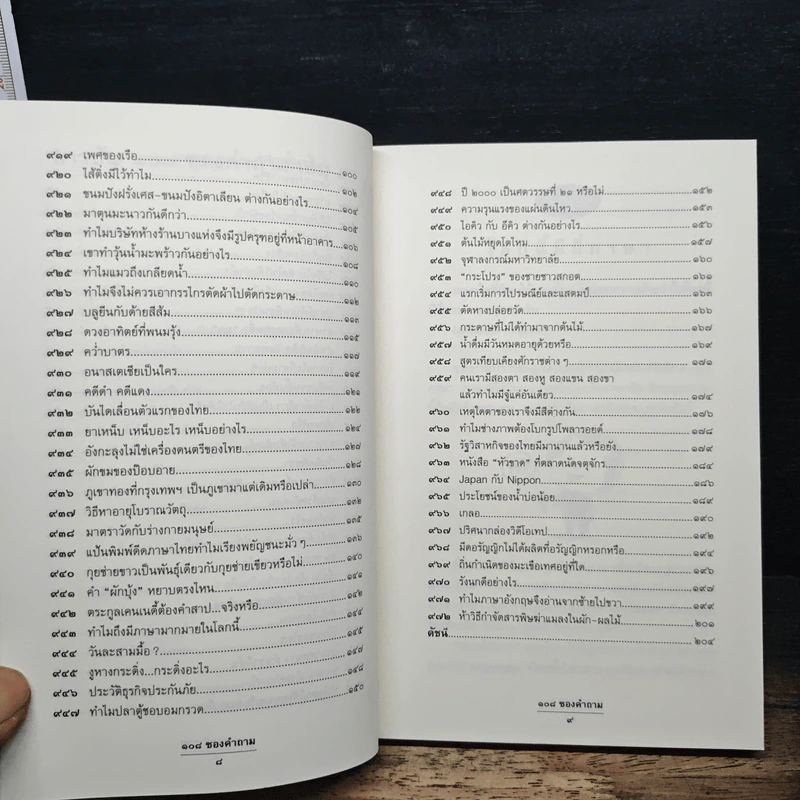 ๙๑๙ เพศของเรือ...๑๐๐
๙๒๐ ไส้ติ่งมีไว้ทำไม...๑๐๒
๙๒๑ ขนมปังฝรั่งเศส-ขนมปังอิตาเลียน ต่างกันอย่างไร...๑๐๔
๙๒๒ มาตุนมะนาวกันดีกว่า...
๙๒๓ ทำไมบริษัทห้างร้านบางแห่งจึงมีรูปครุฑอยู่ที่หน้าอาคาร...๑๐๖
๙๒๔ เขาทำวุ้นน้ำมะพร้าวกันอย่างไร...๑๐๘
๙๒๕ ทำไมแมวถึงเกลียดน้ำ...๑๑๐
๙๒๖ ทำไมจึงไม่ควรเอากรรไกรตัดผ้าไปตัดกระดาษ...๑๑๒
๙๒๗ บลูยีนกับด้ายสีส้ม...๑๑๓
๙๒๘ ดวงอาทิตย์ที่พนมรุ้ง...๑๑๕
๙๒๙ คว่ำบาตร...๑๑๗
๙๓๐ อนาสเตเซียเป็นใคร...๑๑๙
๙๓๑ คดีดำ คดีแดง...๑๒๑
๙๓๒ บันไดเลื่อนตัวแรกของไทย...๑๒๒
๙๓๓ ยาเหน็บ เหน็บอะไร เหน็บอย่างไร...๑๒๔
๙๓๔ อังกะลุงไม่ใช่เครื่องดนตรีของไทย...๑๒๖
๙๓๕ ผักขมของป๊อบอาย...๑๒๘
๙๓๖ ภูเขาทองที่กรุงเทพฯ เป็นภูเขามาแต่เดิมหรือเปล่า...๑๓๐
๙๓๗ วิธีหาอายุโบราณวัตถุ...๑๓๒
๙๓๘ มาตราวัดกับร่างกายมนุษย์...๑๓๕
๙๓๙ แป้นพิมพ์ดีดภาษาไทยทำไมเรียงพยัญชนะมั่ว ๆ...๑๓๗
๙๔๐ กุยช่ายขาวเป็นพันธุ์เดียวกับกุยช่ายเขียวหรือไม่...๑๔๐
๙๔๑ คำ “ผักบุ้ง” หยาบตรงไหน...๑๔๑
๙๔๒ ตระกูลเคนเนดี้ต้องคำสาป...จริงหรือ...๑๔๒
๙๔๓ ทำไมถึงมีภาษามากมายในโลกนี้...๑๔๔
๙๔๔ วันละสามมื้อ ?...๑๔๕
๙๔๕ งูหางกระดิ่ง...กระดิ่งอะไร...๑๔๗
๙๔๖ ประวัติธุรกิจประกันภัย...๑๔๘
๙๔๗ ทำไมปลาตู้ชอบอมกรวด...๑๕๐
๑๐๘ ซองคำถาม
๘
๙๔๘ ปี ๒๐๐๐ เป็นศตวรรษที่ ๒๑ หรือไม่...๑๕๒
๙๔๙ ความรุนแรงของแผ่นดินไหว...๑๕๓
๙๕๐ ไอคิว กับ อีคิว ต่างกันอย่างไร...๑๕๖
๙๕๑ ต้นไม้หยุดโตไหม...๑๕๗
๙๕๒ จุฬาลงกรณ์มหาวิทยาลัย...๑๖๐
๙๕๓ “กระโปรง” ของชายชาวสกอต...๑๖๑
๙๕๔ แรกเริ่มการไปรษณีย์และแสตมป์...๑๖๓
๙๕๕ ตัดหางปล่อยวัด...๑๖๖
๙๕๖ กระดาษที่ไม่ได้ทำมาจากต้นไม้...๑๖๗
๙๕๗ น้ำดื่มมีวันหมดอายุด้วยหรือ...๑๖๙
๙๕๘ สูตรเทียบเคียงศักราชต่าง ๆ...๑๗๑
๙๕๙ คนเรามีสองตา สองหู สองแขน สองขา
แล้วทำไมมีจู๋แค่อันเดียว...๑๗๔
๙๖๐ เหตุใดตาของเราจึงมีสีต่างกัน...๑๗๖
๙๖๑ ทำไมช่างภาพต้องโบกรูปโพลารอยด์...๑๗๘
๙๖๒ รัฐวิสาหกิจของไทยมีมานานแล้วหรือยัง...๑๗๙
๙๖๓ หนังสือ “หัวขาด” ที่ตลาดนัดจตุจักร...๑๘๔
๙๖๔ Japan กับ Nippon...๑๘๖
๙๖๕ ประโยชน์ของน้ำบ่อน้อย...๑๘๙
๙๖๖ เกลอ...๑๙๐
๙๖๗ ปริศนากล่องวิดีโอเทป...๑๙๒
๙๖๘ มีดอรัญญิกไม่ได้ผลิตที่อรัญญิกหรอกหรือ...๑๙๔
๙๖๙ ถิ่นกำเนิดของมะเขือเทศอยู่ที่ใด...๑๙๖
๙๗๐ รังนกดีอย่างไร...๑๙๗
๙๗๑ ทำไมภาษาอังกฤษจึงอ่านจากซ้ายไปขวา...๑๙๙
๙๗๒ ห้าวิธีกำจัดสารพิษฆ่าแมลงในผัก-ผลไม้...๒๐๑
ดัชนี...๒๐๔
๑๐๘ ซองคำถาม
๙